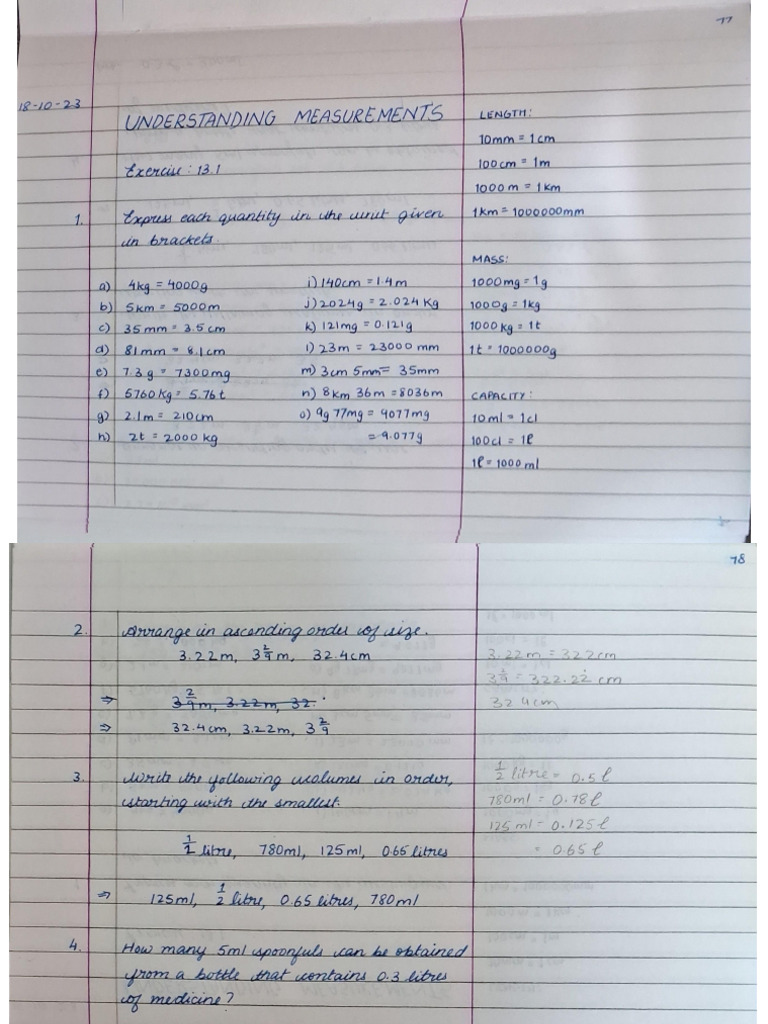 77
18-10-23
UNDERSTANDING MEASUREMENTS
Exercise : 13.1
1. Express each quantity in the unit given
in brackets.
a) 4kg = 4000g
b) 5km = 5000m
c) 35mm = 3.5cm
d) 81mm = 8.1cm
e) 7.3g = 7300mg
f) 5760kg = 5.76t
g) 2.1m = 210cm
h) 2t = 2000 kg
i) 140cm = 1.4m
j) 2024g = 2.024 Kg
k) 121mg = 0.121g
l) 23m = 23000 mm
m) 3cm 5mm = 35mm
n) 8km 36m = 8036m
o) 9g 77mg = 9077mg
= 9.077g
LENGTH:
10mm = 1cm
100cm = 1m
1000m = 1km
1km = 1000000mm
MASS:
1000mg = 1g
1000g = 1kg
1000kg = 1t
1t = 1000000g
CAPACITY:
10ml = 1cl
100cl = 1ℓ
1ℓ = 1000 ml
78
2. Arrange in ascending order of size.
3.22m, 3 2/9 m, 32.4cm
⇒ 3 2/9 m, 3.22m, 32.
⇒ 32.4cm, 3.22m, 3 2/9
3.22m = 322cm
3 2/9 = 322.22 cm
32.4cm
3. Write the following volumes in order,
starting with the smallest.
1/2 litre, 780ml, 125ml, 0.65 litres
⇒ 125ml, 1/2 litre, 0.65 litres, 780ml
1/2 litre = 0.5ℓ
780ml = 0.78ℓ
125ml = 0.125ℓ
= 0.65ℓ
4. How many 5ml spoonfuls can be obtained
from a bottle that contains 0.3 litres
of medicine?